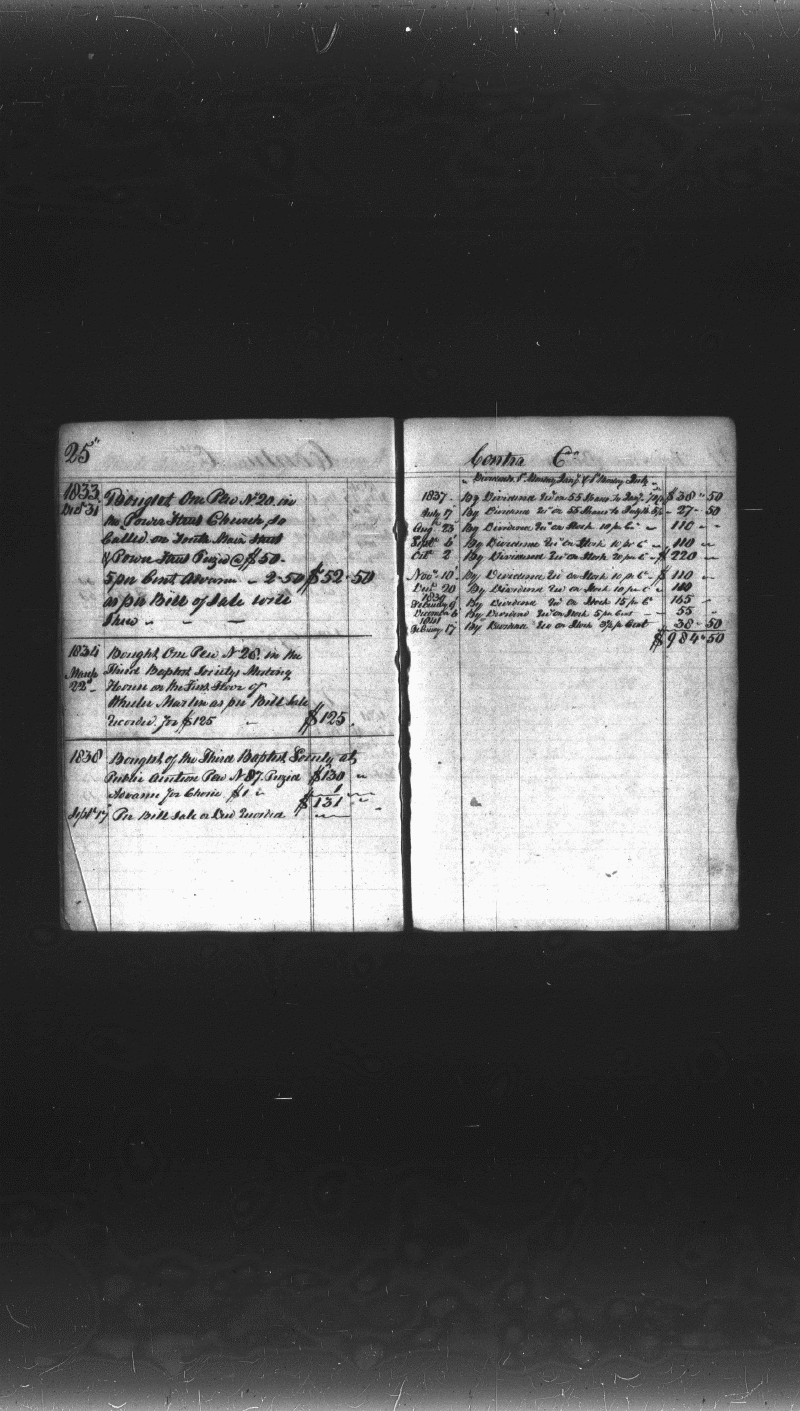 25
1833 Bought One Pew No 20. in
Dec 31 the Power Street Church, so
Called. on North Main Street
& Power Street Prized @ $50.
5 per Cent Advance - 2-50 $52-50
as per Bill of Sale will
Shew - - -
1834 Bought One Pew No 26. in the
March Third Baptist Societys Meeting
22 House on the First Floor of
Wheeler Martin as per Bill Sale
Recorded for $125 " $125.
1838 Bought of the Third Baptist Society at
Public Auction Pew No 87. Prized $130 "
Advance for Choice $1 " 1
$131 "
Sept 17 Per Bill Sale or Deed Recorded
Contra Cr
Dividends 1st Monday Jany & 1st Monday July
1837 - By Dividend Recd on 55 Shares to Jany $38-50
July 17 By Dividend Recd on 55 Shares to July - 27-50
Augt 23 By Dividend Recd on Stock 10 pr Ct - 110 -
Sept 5 By Dividend Recd on Stock 10 pr Ct - 110 -
Oct 2 By Dividend Recd on Stock 20 pr Ct - $220 -
Novr 10 By Dividend Recd on Stock 10 pr Ct - $110 -
Decr 20 By Dividend Recd on Stock 10 pr Ct - 110
1839
February 9 By Dividend Recd on Stock 15 pr Ct 165 -
December 6 By Dividend Recd on Stock 5 pr Cent 55 -
1841
February 17 By Dividend Recd on Stock pr Cent 38-50
$984-50